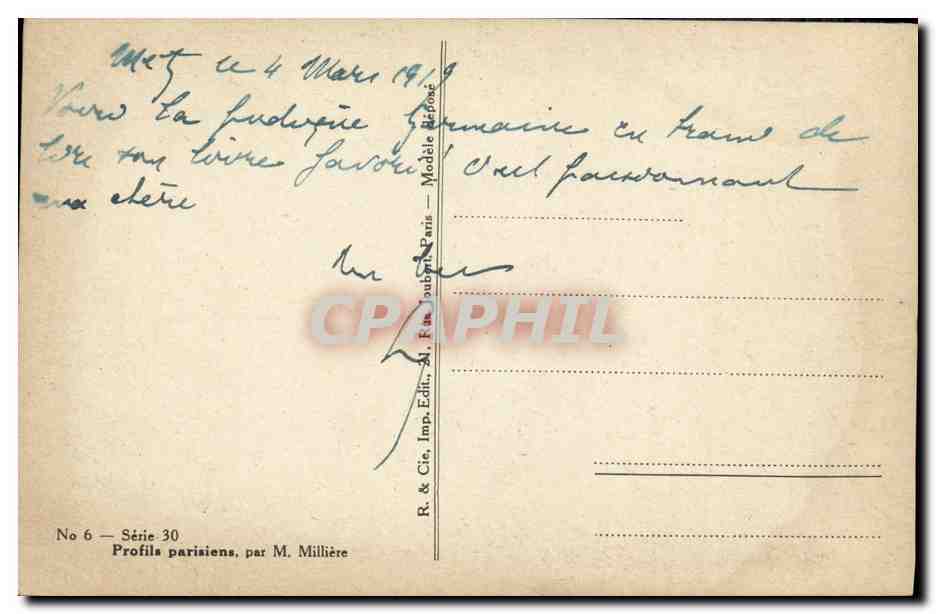 Metz le 4 Mars 1919
Voici la pudique Germaine en train de
lire son livre favori! C'est passionnant
ma chère
Un bec
R. & Cie, Imp. Edit., 21, Rue Joubert, Paris — Modèle déposé
CPAPHIL
No 6 — Série 30
Profils parisiens, par M. Millière